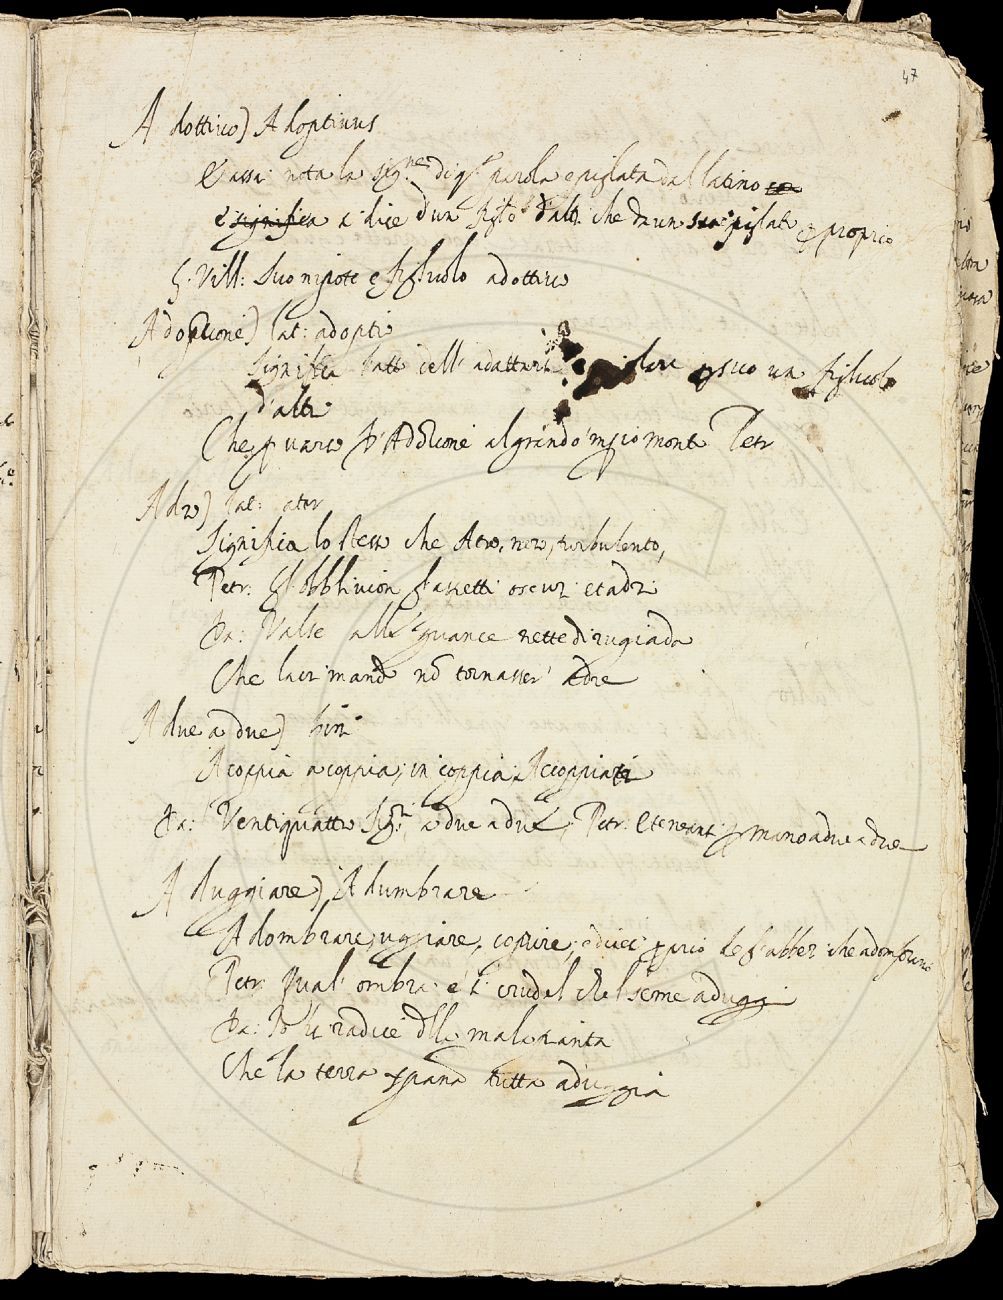 47
Adottivo) Adoptivus
È assai nota la sig.ne di q.a parola e pigliata dal latino
e significa e dice d'un figlo d'alt. che da un sia pigliat p proprio
G. Vill: Suo nipote e figliuolo adottivo
Adoptione) lat: adopti
Significa l'atto dell' adottare pigliare p suo un figliuol
d'altr
Che p varco d'Adoptione al grand' Imperio mont Petr
Adro) lat: ater
Significa lo stesso che Atro, nero, turbulento,
Petr: D'obblivion fassetti oscuri et adri
Da: Valse alle guance nette di rugiada
Che lacrimand nō tornasser' adre
A due a due) bini
A coppia a coppia; in coppia; Accoppiati
Da: Ventiquattro Sig.ri a due a due; Petr: E teneansi p mano a due a due
Aduggiare) Adumbrare
Adombrare, uggiare, coprire; e dicesi p ciò de gl'alberi che adombrano
Petr: Qual' ombra è sì crudel che'l seme aduggi
Da: Io fui radice dlla mala pianta
Che la terra xpiana tutta aduggia